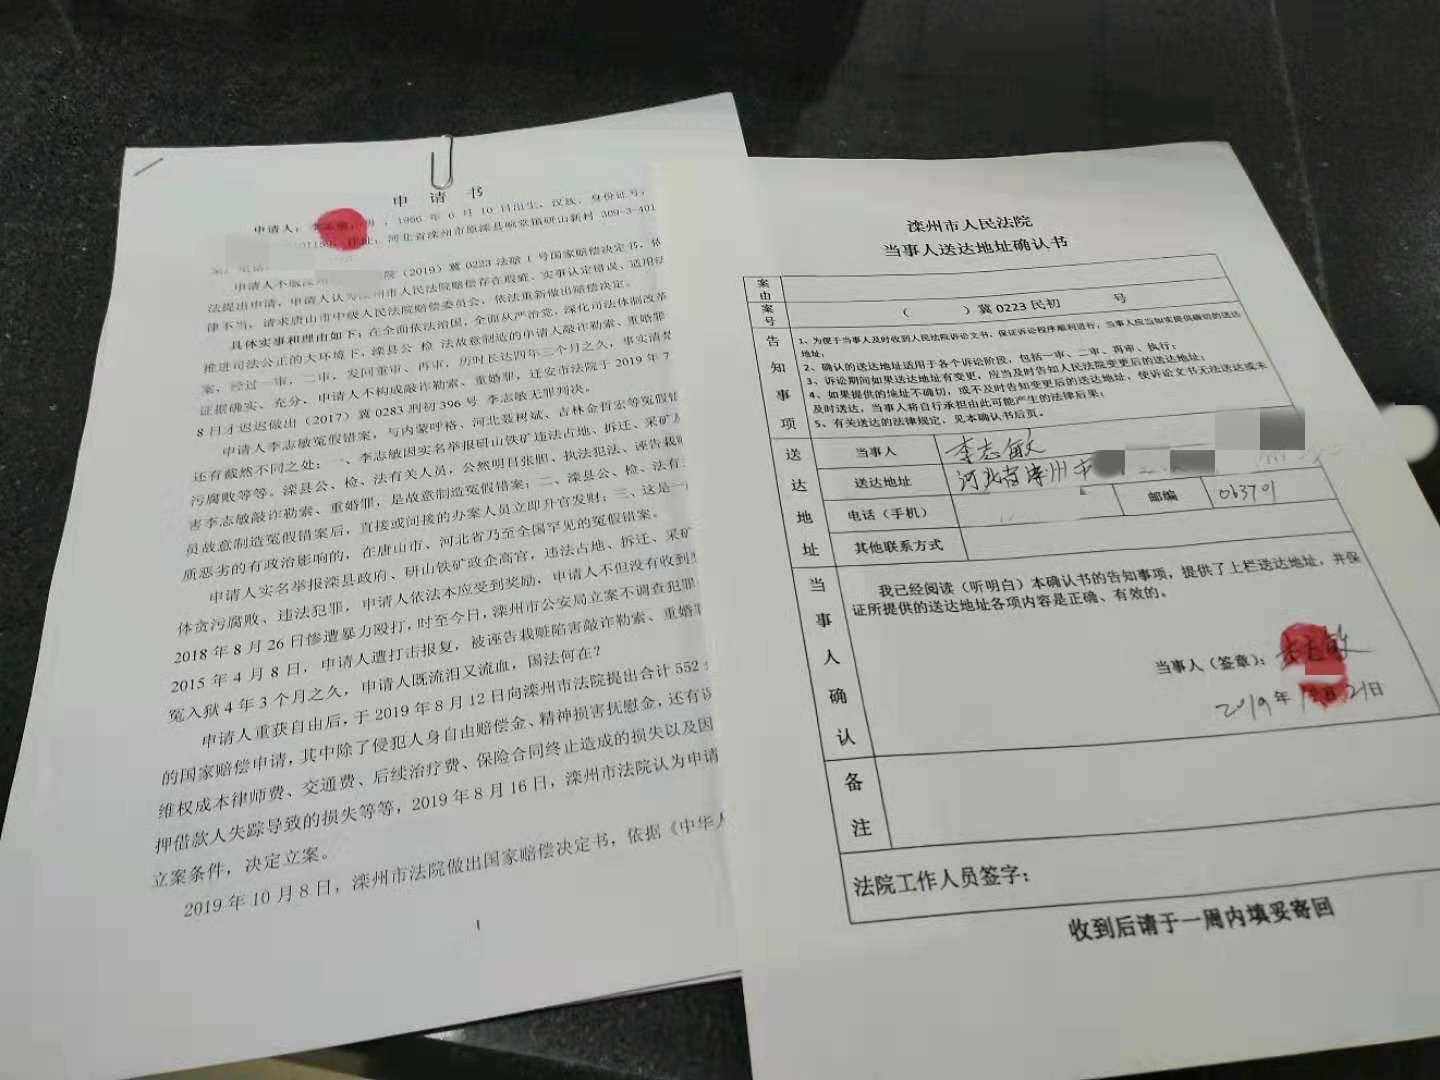 申 请 书
申请人：
，1966 年 6 月 10 日出生，汉族，身份证号，
住址：河北省滦州市原滦县响堂镇研山新村 309-3-401
申请人不服滦州
院（2019）冀 0223 法赔 1 号国家赔偿决定书，依
法提出申请，申请人认为滦州市人民法院赔偿存在瑕疵、实事认定错误、适用法
律不当，请求唐山市中级人民法院赔偿委员会，依法重新做出赔偿决定。
具体实事和理由如下：在全面依法治国，全面从严治党，深化司法体制改革
推进司法公正的大环境下，滦县公 检 法故意制造的申请人敲诈勒索、重婚罪
案，经过一审，二审，发回重审、再审，历时长达四年三个月之久，事实清楚
证据确实、充分，申请人不构成敲诈勒索、重婚罪，迁安市法院于 2019 年 7
8 日才迟迟做出（2017）冀 0283 刑初 396 号 李志敏无罪判决。
申请人李志敏冤假错案，与内蒙呼格、河北聂树斌、吉林金哲宏等冤假错
还有截然不同之处：一、李志敏因实名举报研山铁矿违法占地、拆迁、采矿及
污腐败等等。滦县公、检、法有关人员，公然明目张胆、执法犯法、诬告栽赃
害李志敏敲诈勒索、重婚罪，是故意制造冤假错案；二、滦县公、检、法有
员故意制造冤假错案后，直接或间接的办案人员立即升官发财；三、这是一
质恶劣的有政治影响的，在唐山市、河北省乃至全国罕见的冤假错案。
申请人实名举报滦县政府、研山铁矿政企高官，违法占地、拆迁、采矿
体贪污腐败、违法犯罪，申请人依法本应受到奖励，申请人不但没有收到
2018 年 8 月 26 日惨遭暴力殴打，时至今日，滦州市公安局立案不调查犯罪
2015 年 4 月 8 日，申请人遭打击报复，被诬告栽赃陷害敲诈勒索、重婚罪
冤入狱 4 年 3 个月之久，申请人既流泪又流血，国法何在？
申请人重获自由后，于 2019 年 8 月 12 日向滦州市法院提出合计 552
的国家赔偿申请，其中除了侵犯人身自由赔偿金、精神损害抚慰金，还有误
维权成本律师费、交通费、后续治疗费、保险合同终止造成的损失以及因
押借款人失踪导致的损失等等，2019 年 8 月 16 日，滦州市法院认为申请
立案条件，决定立案。
2019 年 10 月 8 日，滦州市法院做出国家赔偿决定书，依据《中华人
1
滦州市人民法院
当事人送达地址确认书
案由
案号
（ ）冀 0223 民初 号
告知事项
1、为便于当事人及时收到人民法院诉讼文书，保证诉讼程序顺利进行，当事人应当如实提供确切的送达
地址；
2、确认的送达地址适用于各个诉讼阶段，包括一审、二审、再审、执行；
3、诉讼期间如果送达地址有变更，应当及时告知人民法院变更后的送达地址；
4、如果提供的地址不确切，或不及时告知变更后的送达地址，使诉讼文书无法送达或未
及时送达，当事人将自行承担由此可能产生的法律后果；
5、有关送达的法律规定，见本确认书后页。
送达地址
当事人 李志敏
送达地址 河北省滦州市
电话（手机） 邮编 063701
其他联系方式
当事人确认
我已经阅读（听明白）本确认书的告知事项，提供了上栏送达地址，并保
证所提供的送达地址各项内容是正确、有效的。
当事人（签章）：李志敏
2019 年 月 21 日
备注
法院工作人员签字：
收到后请于一周内填妥寄回